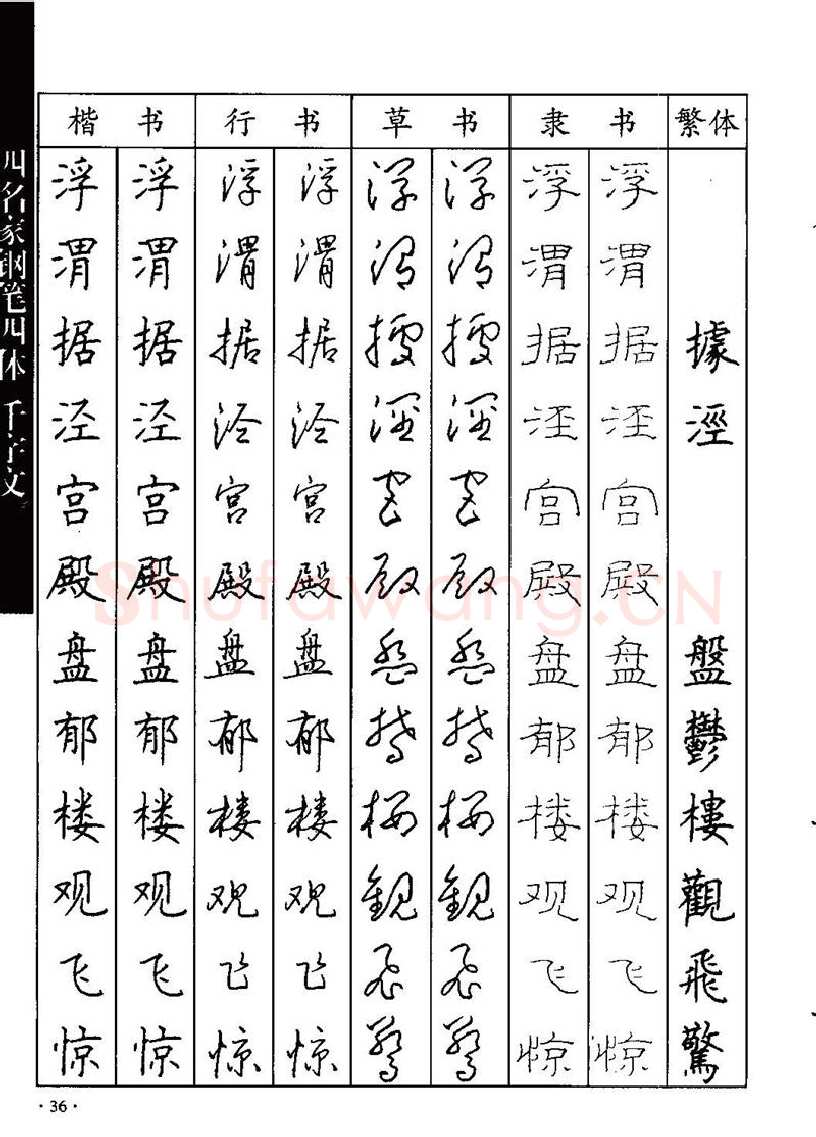 楷书 行书 草书 隶书 繁体
浮 浮 浮 浮 浮 浮 浮 浮
渭 渭 渭 渭 渭 渭 渭 渭
据 据 据 据 據 據 据 据 據
泾 泾 泾 泾 涇 涇 泾 泾 涇
宫 宫 宫 宫 宫 宫 宫 宫
殿 殿 殿 殿 殿 殿 殿 殿
盘 盘 盘 盘 盘 盘 盘 盘 盤
郁 郁 郁 郁 郁 郁 郁 郁 鬱
楼 楼 楼 楼 楼 楼 楼 楼 樓
观 观 观 观 觀 觀 观 观 觀
飞 飞 飞 飞 飛 飛 飞 飞 飛
惊 惊 惊 惊 驚 驚 惊 惊 驚
四名家钢笔四体千字文
Shufawang.CN
·36·